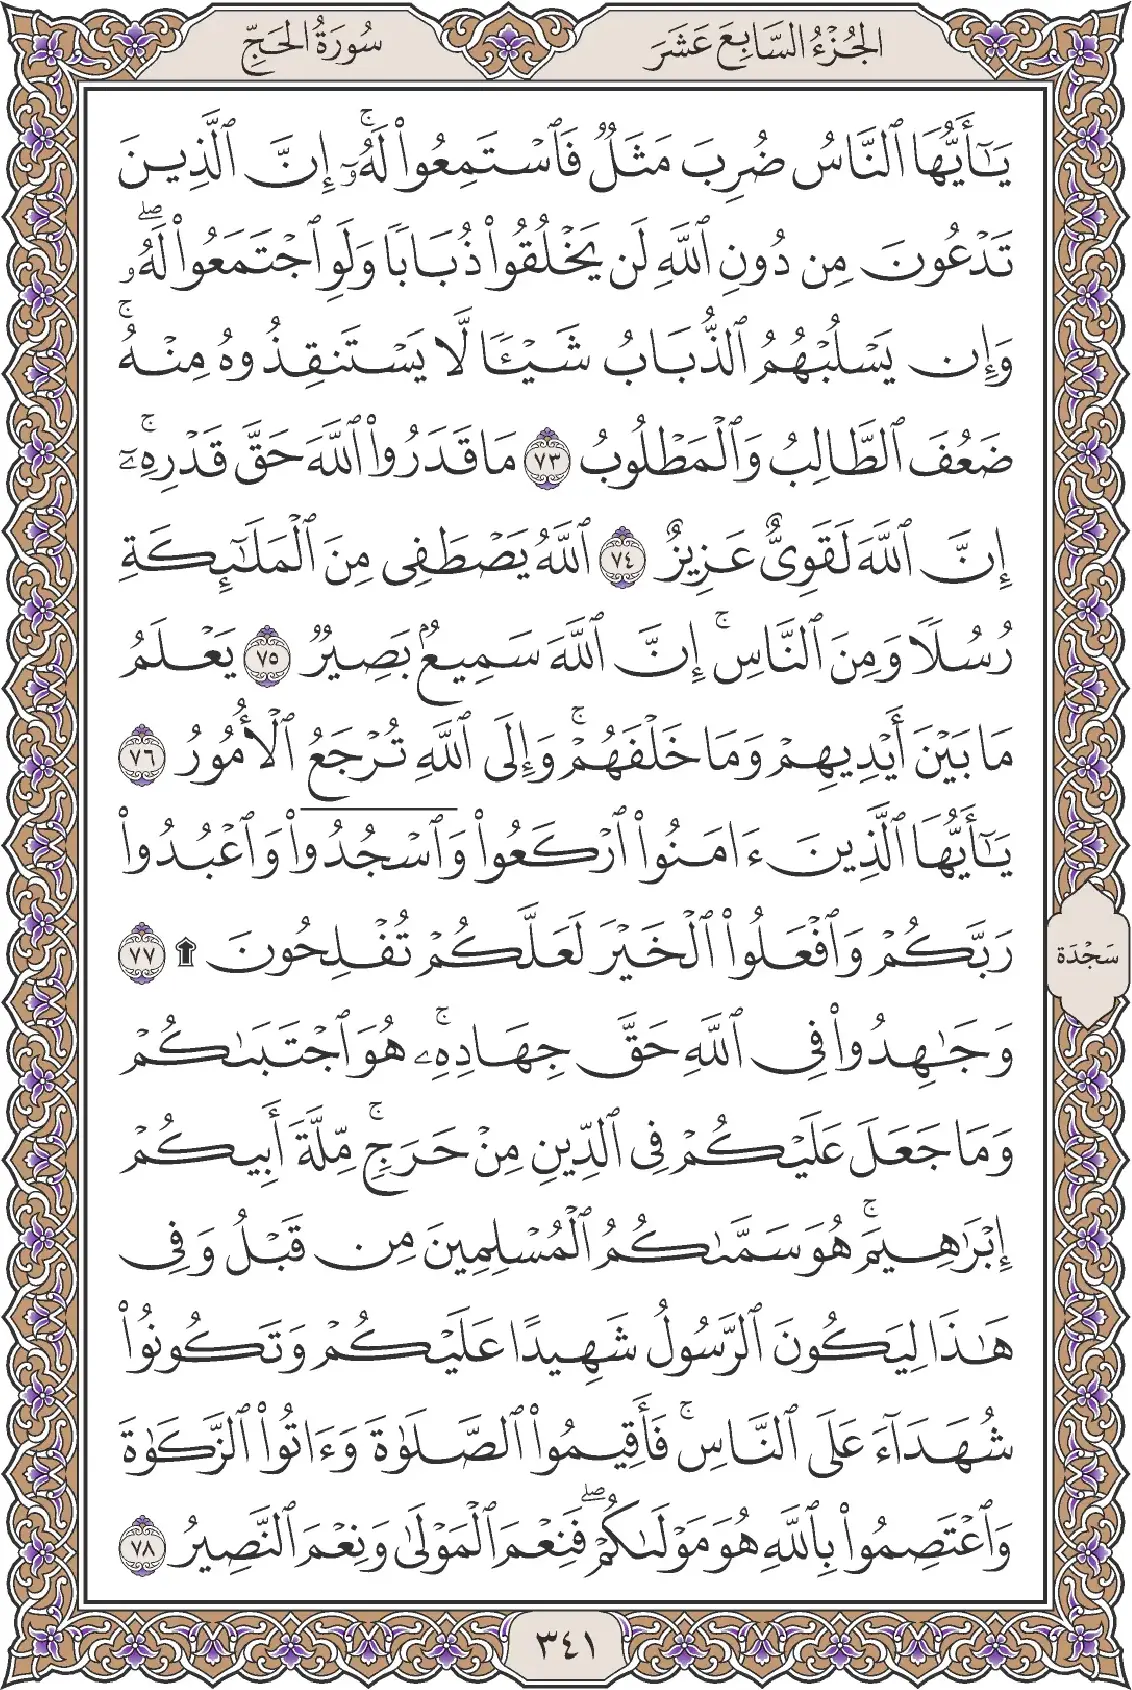 الجُزْءُ السَّابِعَ عَشَرَ
سُورَةُ الحَجِّ
يَٰٓأَيُّهَا ٱلنَّاسُ ضُرِبَ مَثَلٌ فَٱسْتَمِعُوا۟ لَهُۥٓ ۚ إِنَّ ٱلَّذِينَ
تَدْعُونَ مِن دُونِ ٱللَّهِ لَن يَخْلُقُوا۟ ذُبَابًا وَلَوِ ٱجْتَمَعُوا۟ لَهُۥ ۖ
وَإِن يَسْلُبْهُمُ ٱلذُّبَابُ شَيْـًٔا لَّا يَسْتَنقِذُوهُ مِنْهُ ۚ
ضَعُفَ ٱلطَّالِبُ وَٱلْمَطْلُوبُ ٧٣ مَا قَدَرُوا۟ ٱللَّهَ حَقَّ قَدْرِهِۦٓ ۚ
إِنَّ ٱللَّهَ لَقَوِىٌّ عَزِيزٌ ٧٤ ٱللَّهُ يَصْطَفِى مِنَ ٱلْمَلَٰٓئِكَةِ
رُسُلًا وَمِنَ ٱلنَّاسِ ۚ إِنَّ ٱللَّهَ سَمِيعٌۢ بَصِيرٌ ٧٥ يَعْلَمُ
مَا بَيْنَ أَيْدِيهِمْ وَمَا خَلْفَهُمْ ۗ وَإِلَى ٱللَّهِ تُرْجَعُ ٱلْأُمُورُ ٧٦
يَٰٓأَيُّهَا ٱلَّذِينَ ءَامَنُوا۟ ٱرْكَعُوا۟ وَٱسْجُدُوا۟ وَٱعْبُدُوا۟
رَبَّكُمْ وَٱفْعَلُوا۟ ٱلْخَيْرَ لَعَلَّكُمْ تُفْلِحُونَ ۩ ٧٧
سَجْدَة
وَجَٰهِدُوا۟ فِى ٱللَّهِ حَقَّ جِهَادِهِۦ ۚ هُوَ ٱجْتَبَىٰكُمْ
وَمَا جَعَلَ عَلَيْكُمْ فِى ٱلدِّينِ مِنْ حَرَجٍ ۚ مِّلَّةَ أَبِيكُمْ
إِبْرَٰهِيمَ ۚ هُوَ سَمَّىٰكُمُ ٱلْمُسْلِمِينَ مِن قَبْلُ وَفِى
هَٰذَا لِيَكُونَ ٱلرَّسُولُ شَهِيدًا عَلَيْكُمْ وَتَكُونُوا۟
شُهَدَآءَ عَلَى ٱلنَّاسِ ۚ فَأَقِيمُوا۟ ٱلصَّلَوٰةَ وَءَاتُوا۟ ٱلزَّكَوٰةَ
وَٱعْتَصِمُوا۟ بِٱللَّهِ هُوَ مَوْلَىٰكُمْ ۖ فَنِعْمَ ٱلْمَوْلَىٰ وَنِعْمَ ٱلنَّصِيرُ ٧٨
٣٤١